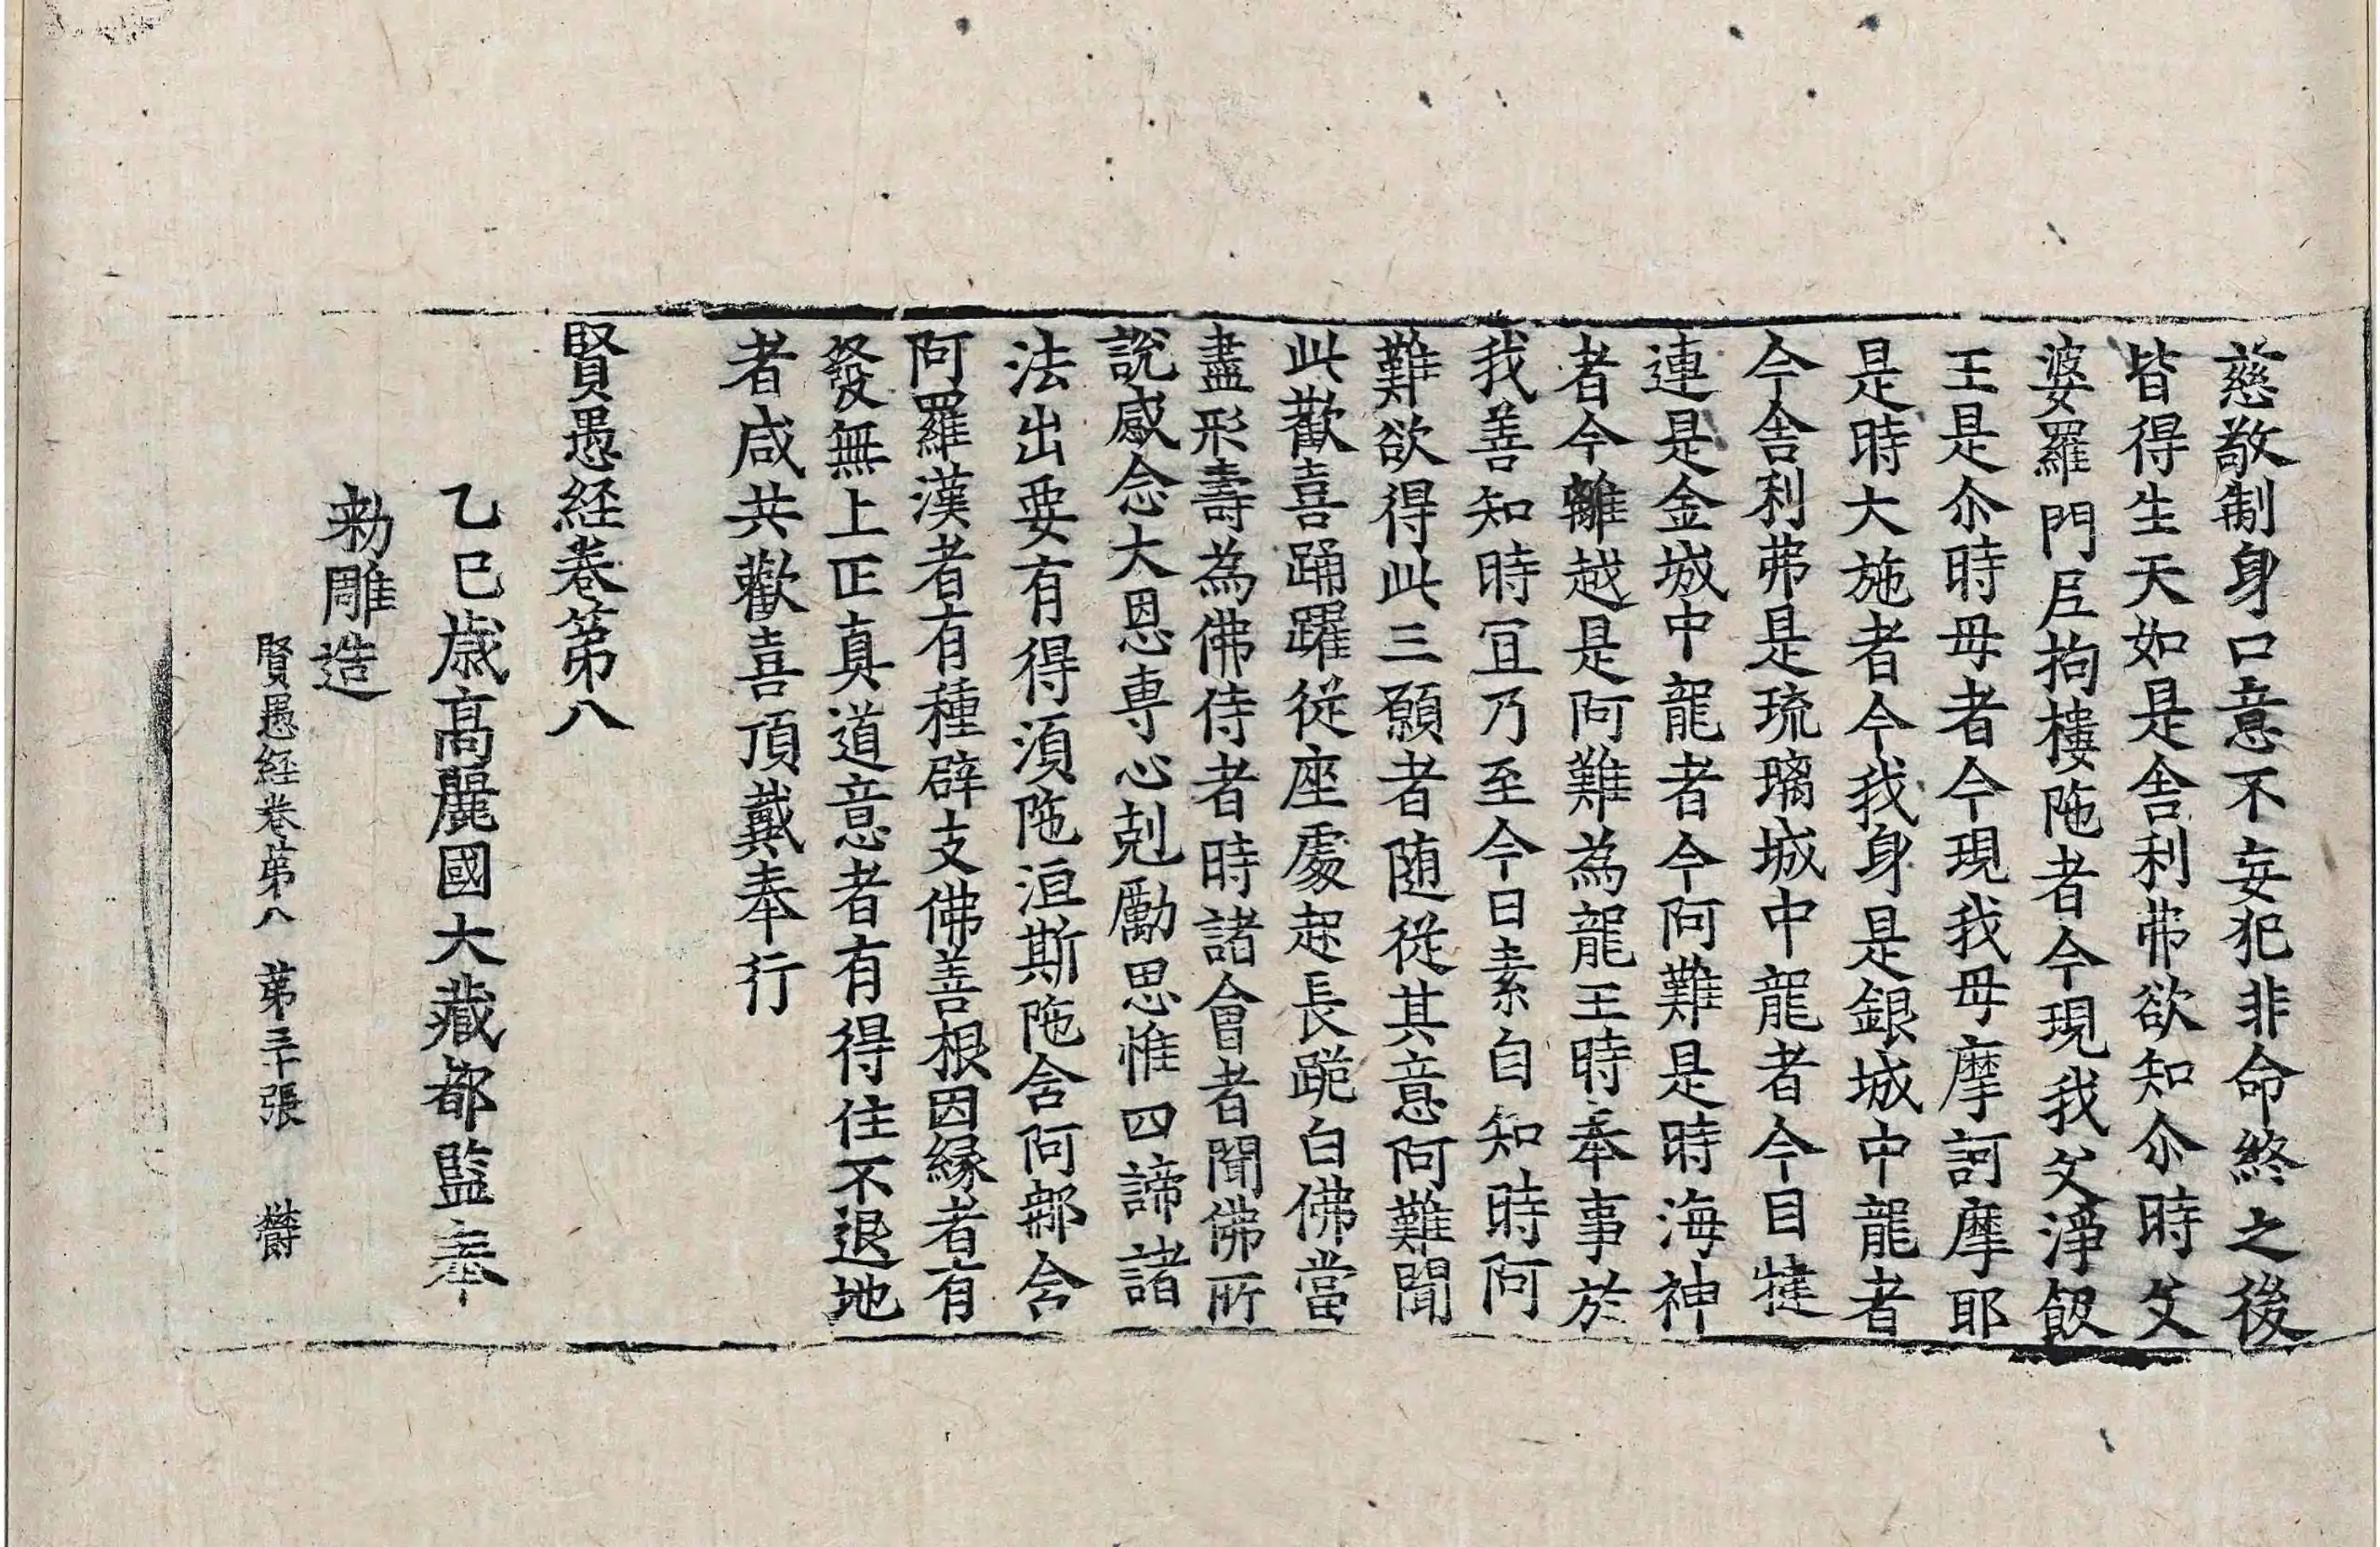 慈敬制身口意不妄犯非命終之後
皆得生天如是舎利弗欲知尒時父
婆羅門𡰱拘樓陁者今現我父淨飯
王是尒時母者今現我母摩訶摩耶
是時大施者今我身是銀城中龍者
今舎利弗是琉璃城中龍者今目揵
連是金城中龍者今阿難是時海神
者今離越是阿難為龍王時奉事於
我善知時冝乃至今日素自知時阿
難欲得此三願者随從其意阿難聞
此歡喜踊躍從座處起長跪白佛當
盡形壽為佛侍者時諸會者聞佛所
說感念大恩專心剋勵思惟四諦諸
法出要有得湏陁洹斯陁含阿那含
阿羅漢者有種辟支佛善根因縁者有
發無上正真道意者有得住不退地
者咸共歡喜頂戴奉行
賢愚経卷第八
乙巳歳高麗國大藏都監奉
勑雕造
賢愚経卷第八 第三十張 欝